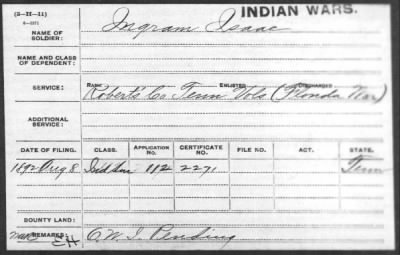 (3-II-11)
6-3271
INDIAN WARS.
NAME OF SOLDIER: Ingram Isaac
NAME AND CLASS OF DEPENDENT:
SERVICE: RANK ENLISTED DISCHARGED
Roberts' Co Tenn Vols (Florida War)
ADDITIONAL SERVICE:
DATE OF FILING. CLASS. APPLICATION NO. CERTIFICATE NO. FILE NO. ACT. STATE.
1892 Aug 8 112 2271 Tenn
BOUNTY LAND:
REMARKS: C.W.I. Pending